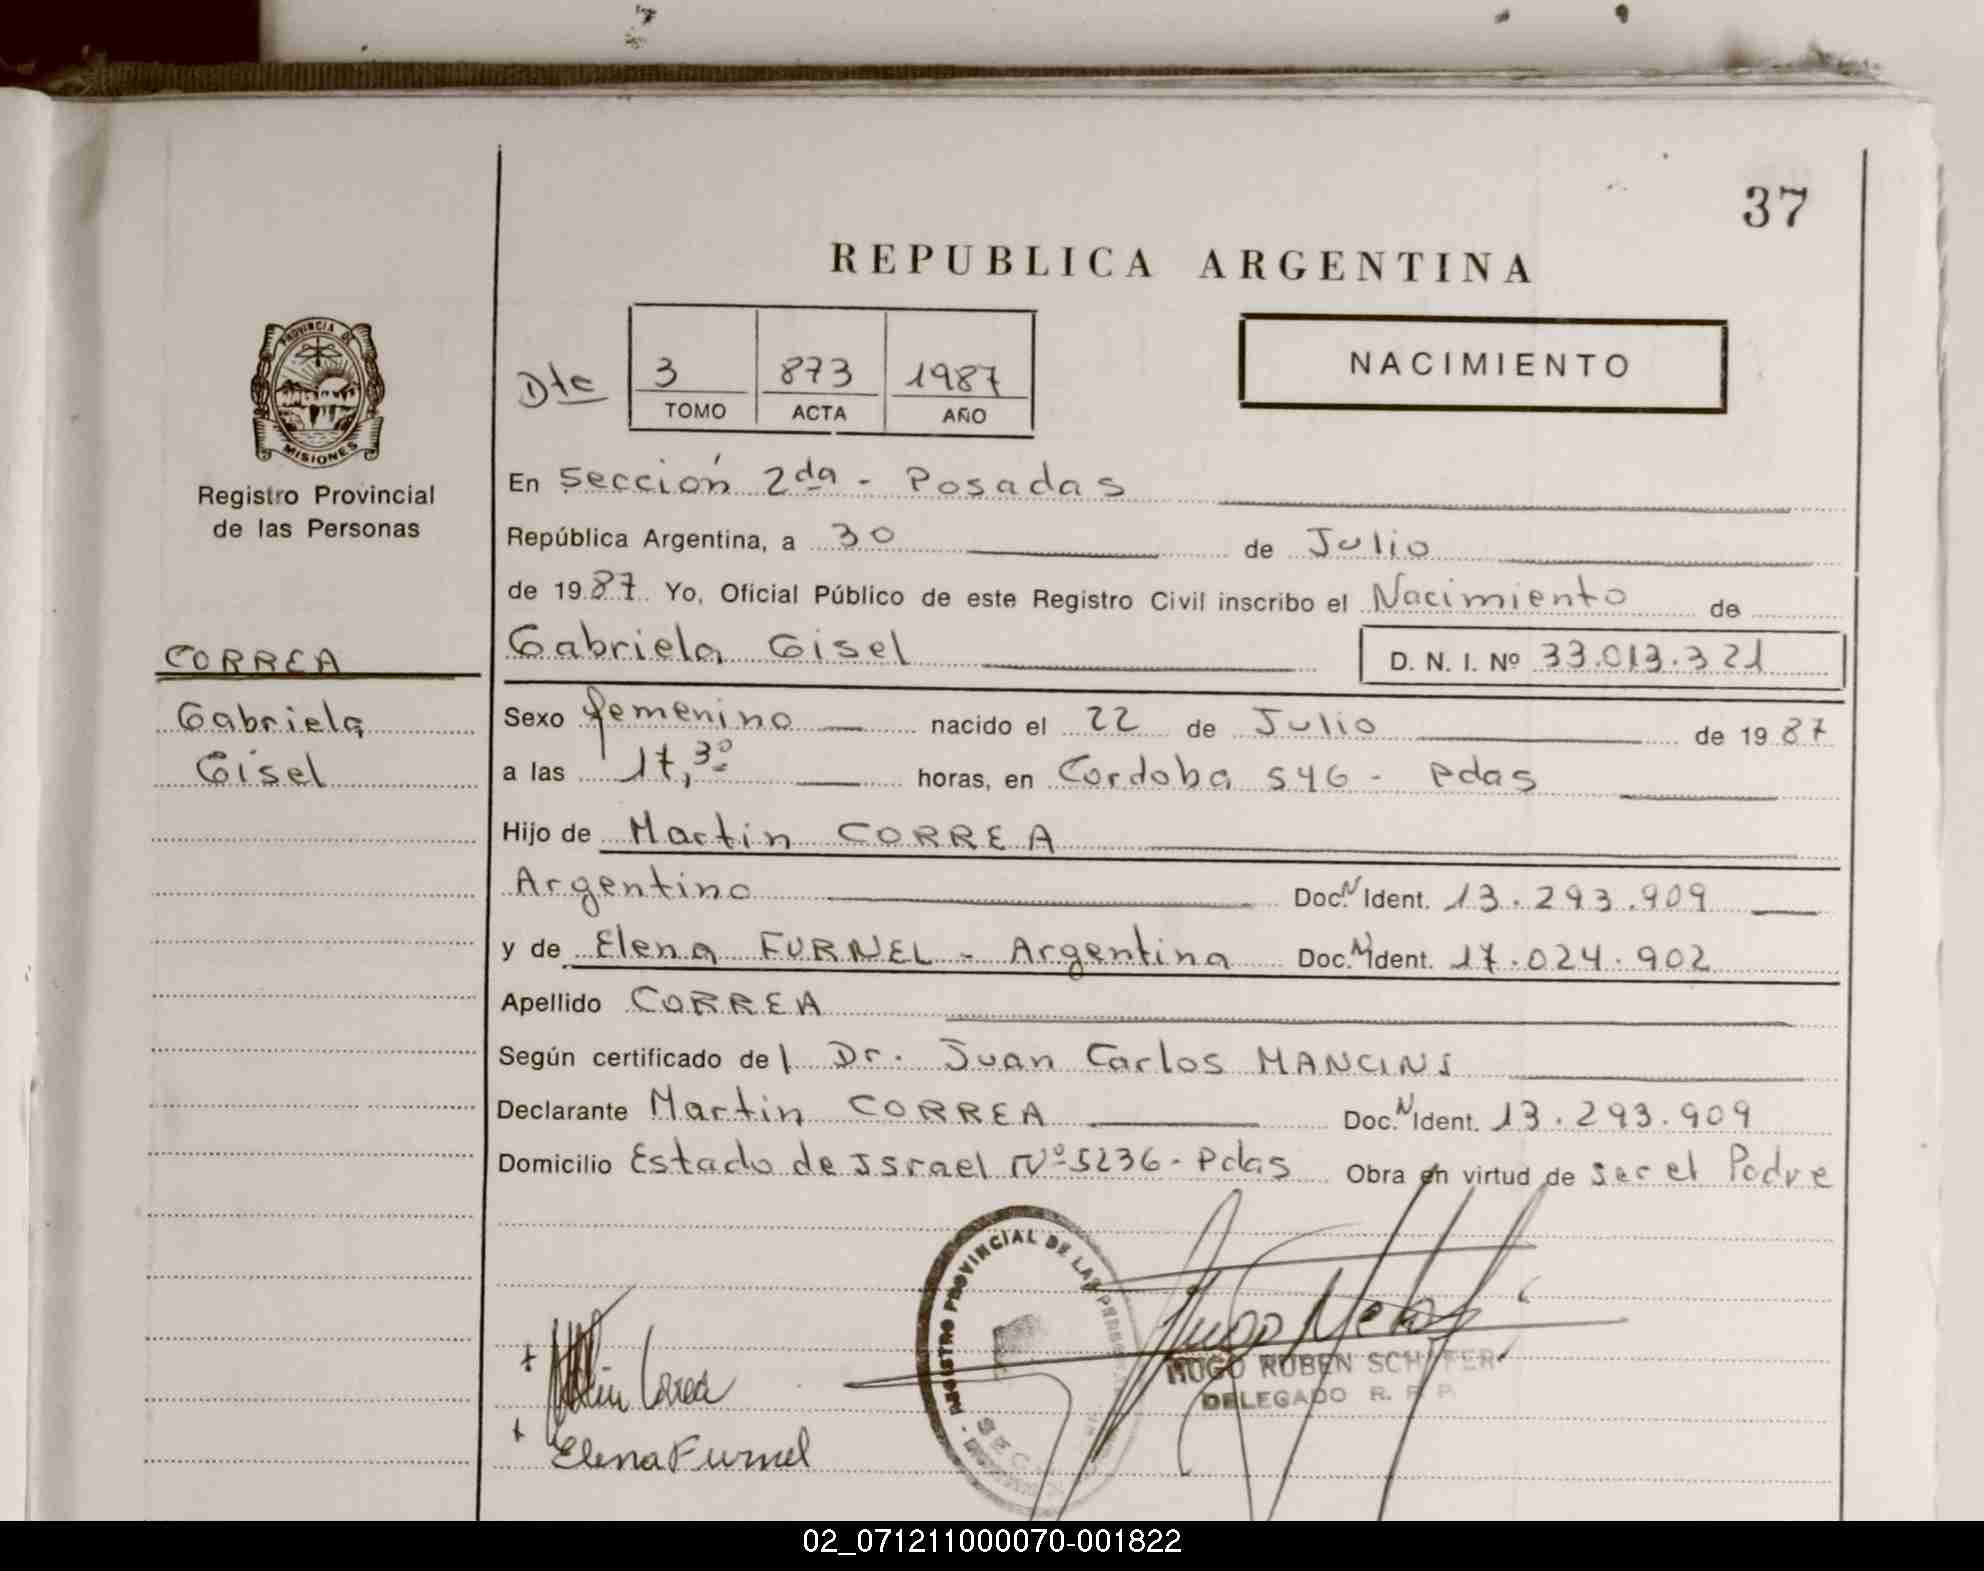 37
REPUBLICA ARGENTINA
NACIMIENTO
Dte 3 873 1987
TOMO ACTA AÑO
PROVINCIA DE
MISIONES
Registro Provincial
de las Personas
CORREA
Gabriela
Gisel
En Sección 2da - Posadas
República Argentina, a 30 de Julio
de 1987 Yo, Oficial Público de este Registro Civil inscribo el Nacimiento de
Gabriela Gisel D. N. I. Nº 33.013.321
Sexo femenino nacido el 22 de Julio de 1987
a las 17,30 horas, en Cordoba 546 - Pdas
Hijo de Martin CORREA
Argentino Doc. N Ident. 13.293.909
y de Elena FURNEL - Argentina Doc. N Ident. 17.024.902
Apellido CORREA
Según certificado del Dr. Juan Carlos MANCINI
Declarante Martin CORREA Doc. N Ident. 13.293.909
Domicilio Estado de Israel Nº 5236 - Pdas Obra en virtud de ser el Padre
REGISTRO PROVINCIAL DE LAS
HUGO RUBEN SCHAFER
DELEGADO R. P. P.
Correa
Elena Furnel
02_071211000070-001822